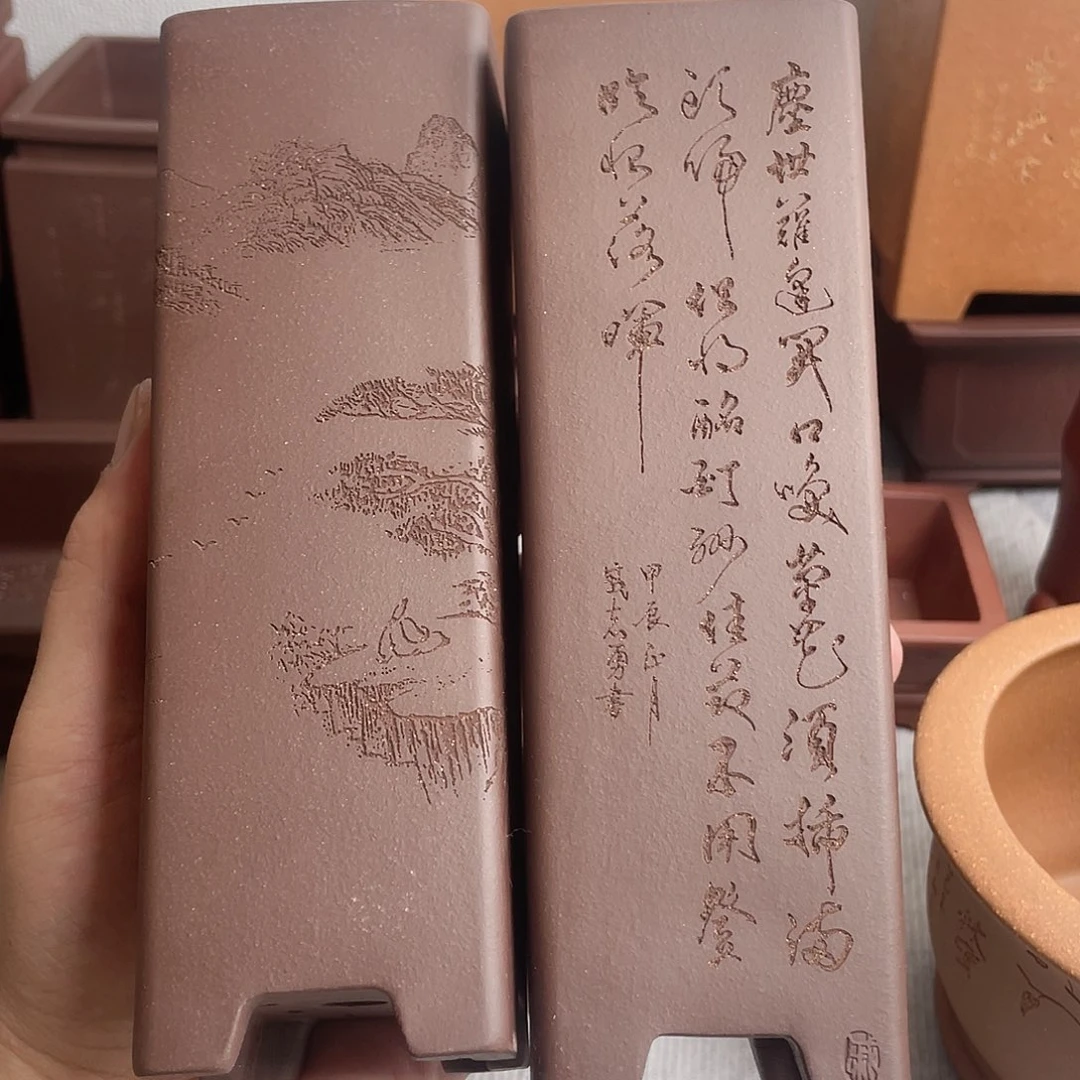 塵世難逢開口咲菊花須插滿
頭歸但將酩酊酬佳節不用登
臨恨落暉
甲辰正月
志勇書